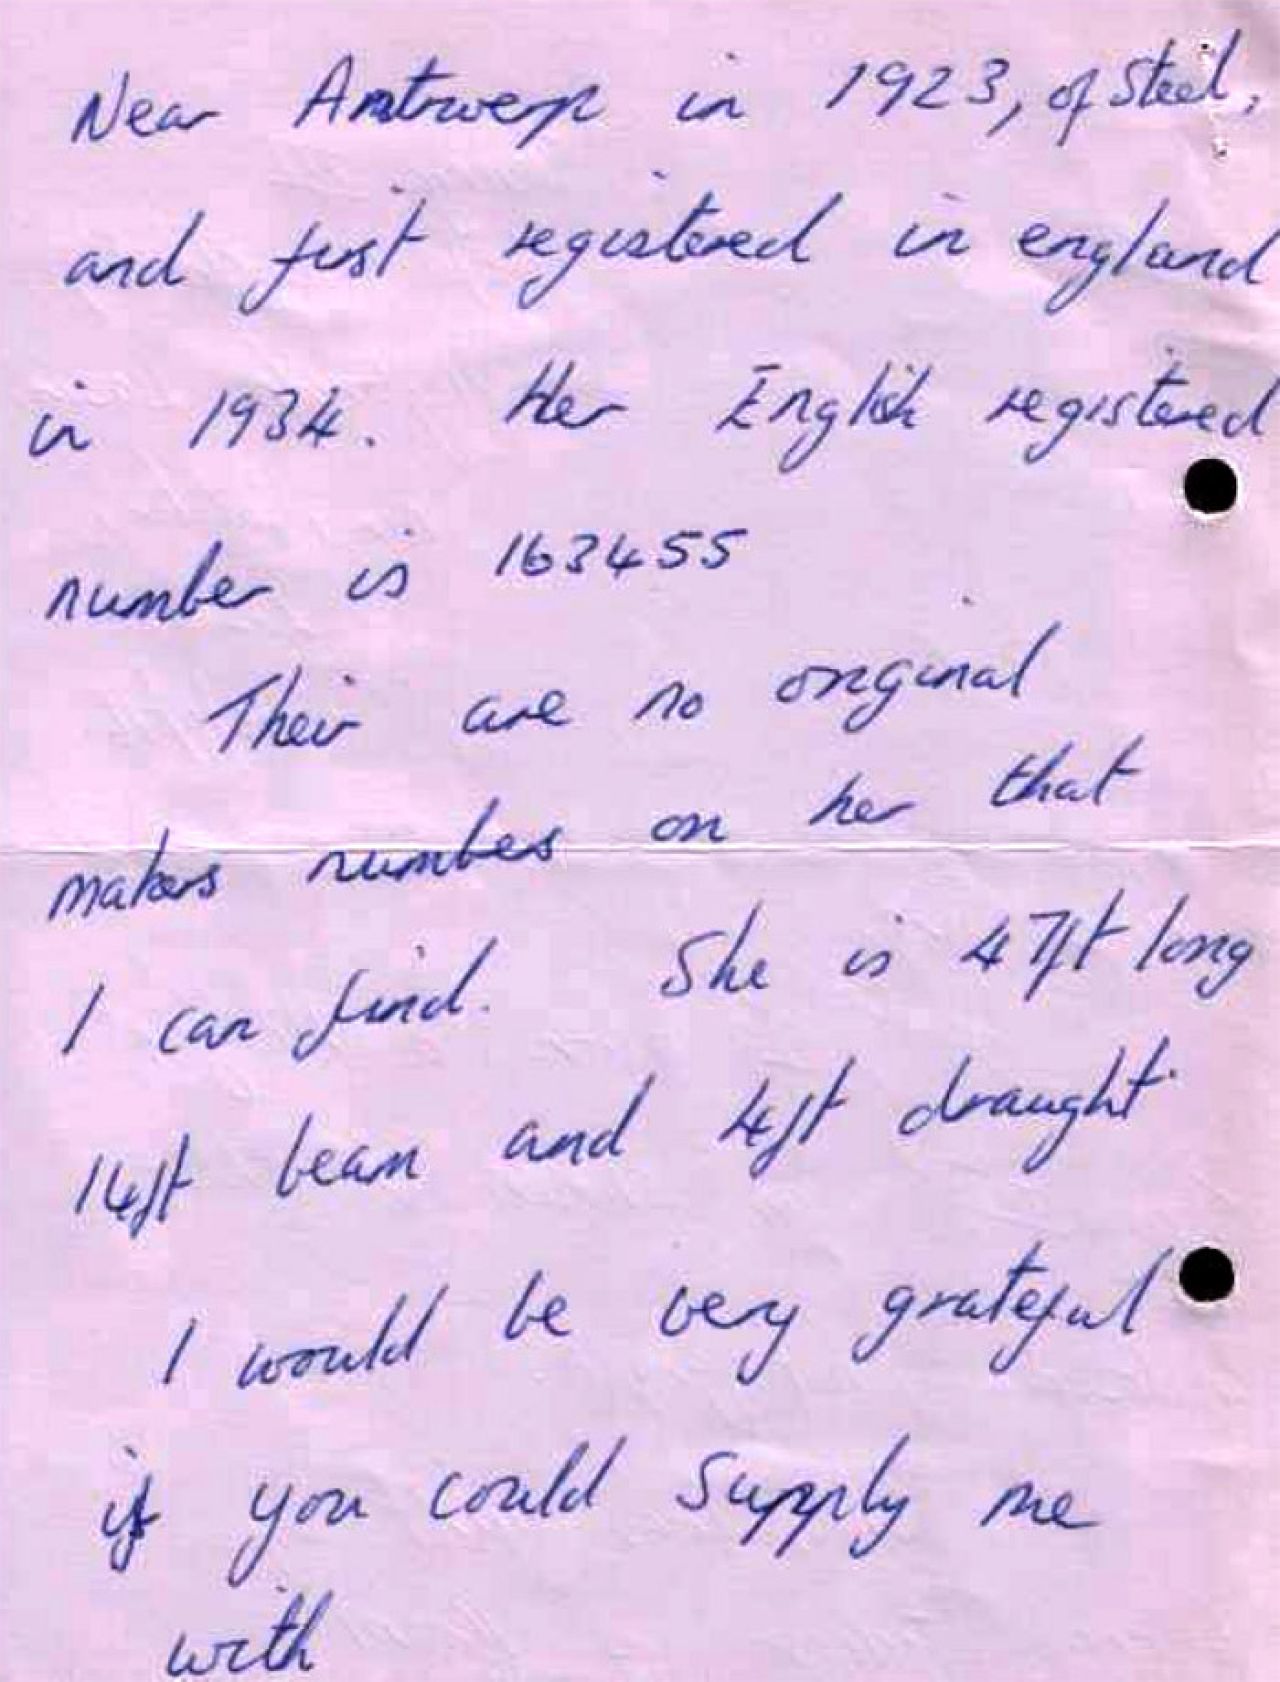 Near Antwerp in 1923, of Steel,
and first registered in england
in 1934. Her English registered
number is 163455
Their are no original
makers numbers on her that
I can find. She is 47ft long
14ft beam and 4ft draught
I would be very grateful
if you could Supply me
with